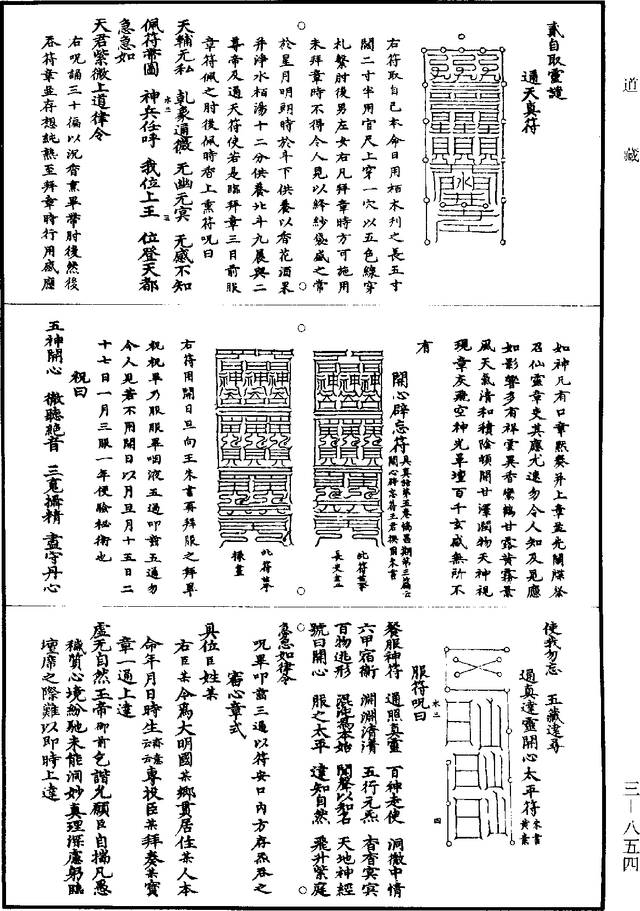 道藏
三一八五四
貳自取靈證
通天真符
右符取自己本命日用栢木刋之長五寸
闊二寸半用官尺上穿一穴以五色線穿
札繫肘後男左女右凡拜章時方可施用
未拜章時不得令人見以絳紗袋盛之常
於星月明朗時於斗下供養以香花酒果
并淨水栢湯十二分供養北斗九晨與二
尊帝及通天符使若是臨拜章三日前服
章符佩之肘後佩時香上熏符呪曰
天輔元私 乾象通微 无幽元冥 无感不知
佩符帶圖 神兵任呼 我位上王 位登天都
急急如
天君紫微上道律令
右呪誦三十徧以沉香熏畢帶肘後然後
吞符章並存想純熟至拜章時行用感應
如神凡有口章黙奏并上章並先關牒發
召仙靈章吏其應尤速勿令人知及見應
如影響多有祥雲異香鸞鶴甘露黃霧景
風天氣清和積陰頓開甘澤潤物天神視
現章灰飛空神光單壇百千玄感無所不
有
開心辟忘符
此符畢長史畫
此符畢掾畫
右符用開日旦向王朱書再拜服之拜畢
祝祝畢乃服服畢咽液五過叩齒五通勿
令人見若不用開日以月旦月十五日二
十七日一月三服一年便驗秘術也
祝曰
五神開心 徹聽絕音 三䰟攝精 盡守丹心
使我勿忘 五藏遠尋
通真達靈開心太平符 朱書黃素
服符呪曰
餐服神符 通照真靈 百神走使 洞徹中情
六甲宿衛 淵淵清清 五行元炁 杳杳冥冥
百物逃形 聞聲以知名 天地神經
號曰開心 服之太平 達知自然 飛升紫庭
急急如律令
呪畢叩齒三通以符安口內方存炁吞之
審心章式
具位臣姓某
右臣某今爲大明國某鄉貫居住某人本
命年月日時生云云專投臣某拜奏某寳
章一通上達
虛无自然玉帝御前乞譜光願臣自揣凡愚
穢質心境紛馳未能洞妙真理深慮躬臨
壇席之際難以即時上達